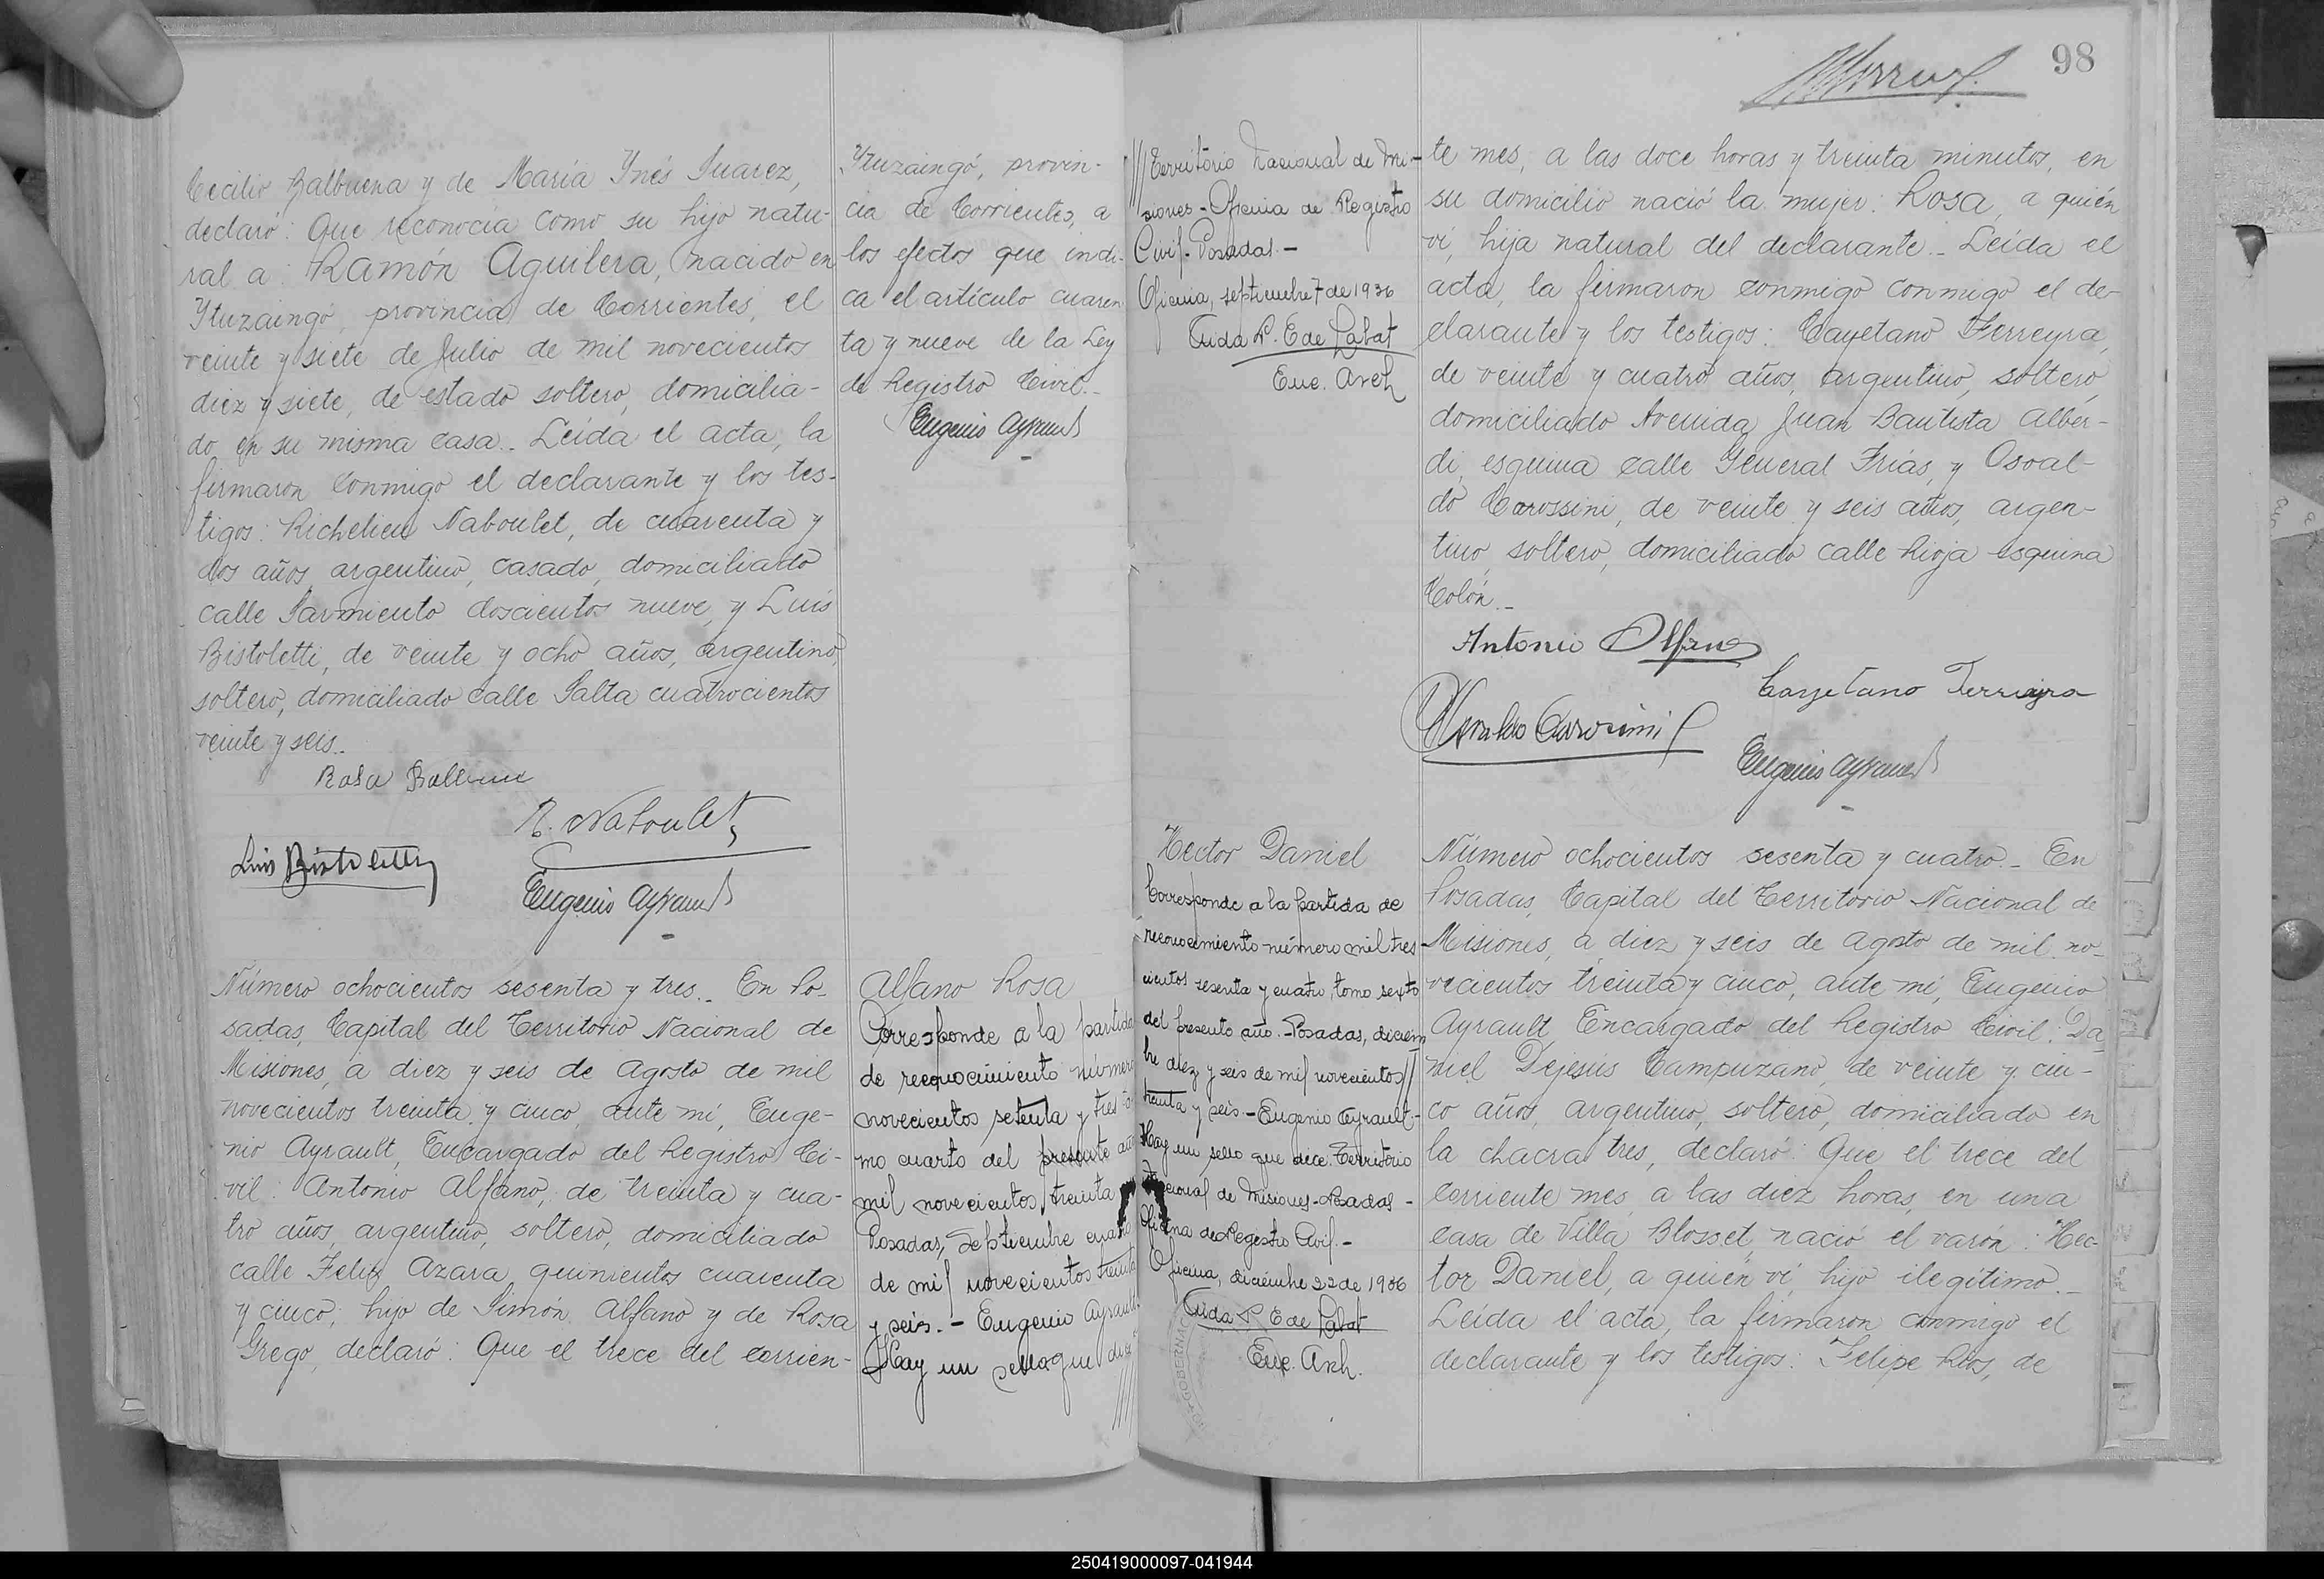 Cecilio Balbuena y de María Ynés Suarez,
declaró: Que reconocía como su hijo natu-
ral a: Ramón Aguilera, nacido en
Ytuzaingó, provincia de Corrientes, el
veinte y siete de Julio de mil novecientos
diez y siete, de estado soltero, domicilia-
do en su misma casa.- Leída el acta, la
firmaron conmigo el declarante y los tes-
tigos: Richelieu Naboulet, de cuarenta y
dos años, argentino, casado, domiciliado
calle Sarmiento doscientos nueve, y Luis
Bistoletti, de veinte y ocho años, argentino,
soltero, domiciliado calle Salta cuatrocientos
veinte y seis.-
Rosa Balbuena
R. Naboulet
Luis Bistoletti
Eugenio Ayrault
Ytuzaingó, provin-
cia de Corrientes, a
los efectos que indi-
ca el artículo cuaren
ta y nueve de la Ley
de Registro Civil.-
Eugenio Ayrault
Número ochocientos sesenta y tres.- En Po-
sadas, Capital del Territorio Nacional de
Misiones, a diez y seis de Agosto de mil
novecientos treinta y cinco, ante mí, Euge-
nio Ayrault, Encargado del Registro Ci-
vil: Antonio Alfano, de treinta y cua-
tro años, argentino, soltero, domiciliado
calle Felix Azara quinientos cuarenta
y cinco; hijo de Simón Alfano y de Rosa
Grego, declaró: Que el trece del corrien-
Alfano Rosa
Corresponde a la partida
de reconocimiento número
novecientos setenta y tres to
mo cuarto del presente año
mil novecientos treinta
Posadas, Septiembre cuatro
de mil novecientos treinta
y seis.- Eugenio Ayrault
Hay un sello que dice
98
/// Territorio Nacional de Mi-
siones - Oficina de Registro
Civil - Posadas.-
Oficina, septiembre 7 de 1936
Aida P. E de Labat
Enc. Arch
te mes, a las doce horas y treinta minutos, en
su domicilio nació la mujer: Rosa, a quién
ví, hija natural del declarante.- Leída el
acta, la firmaron conmigo conmigo el de-
clarante y los testigos: Cayetano Ferreyra,
de veinte y cuatro años, argentino, soltero,
domiciliado Avenida Juan Bautista Alber-
di, esquina calle General Frías, y Osval-
do Carossini, de veinte y seis años, argen-
tino, soltero, domiciliado calle Rioja esquina
Colón.-
Antonio Alfano
Cayetano Ferreyra
Osvaldo Carossini
Eugenio Ayrault
Hector Daniel
Corresponde a la partida de
reconocimiento número mil tres-
cientos sesenta y cuatro, tomo sexto
del presente año.- Posadas, diciem
bre diez y seis de mil novecientos //
treinta y seis - Eugenio Ayrault.-
Hay un sello que dice: Territorio
Nacional de Misiones - Posadas -
Oficina de Registro Civil.-
Oficina, diciembre 22 de 1936
Aida P. E de Labat
Enc. Arch.
Número ochocientos sesenta y cuatro.- En
Posadas, Capital del Territorio Nacional de
Misiones, a diez y seis de Agosto de mil no-
vecientos treinta y cinco, ante mí, Eugenio
Ayrault, Encargado del Registro Civil: Da-
niel Dejesús Campuzano, de veinte y cin-
co años, argentino, soltero, domiciliado en
la chacra tres, declaró: Que el trece del
corriente mes, a las diez horas, en una
casa de Villa Blosset, nació el varón: Hec-
tor Daniel, a quién ví, hijo ilegítimo.-
Leída el acta, la firmaron conmigo el
declarante y los testigos: Felipe Rios, de
250419000097-041944